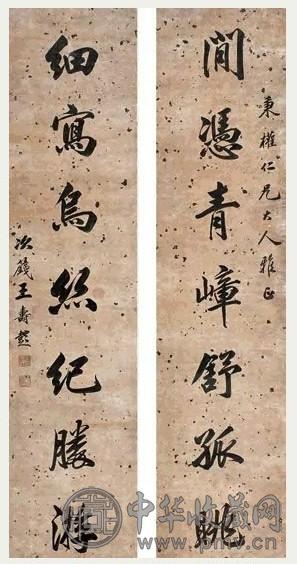 秉權仁兄大人雅正
閒憑青嶂舒孤眺
細寫烏絲紀勝游
籛王壽
中华收藏网